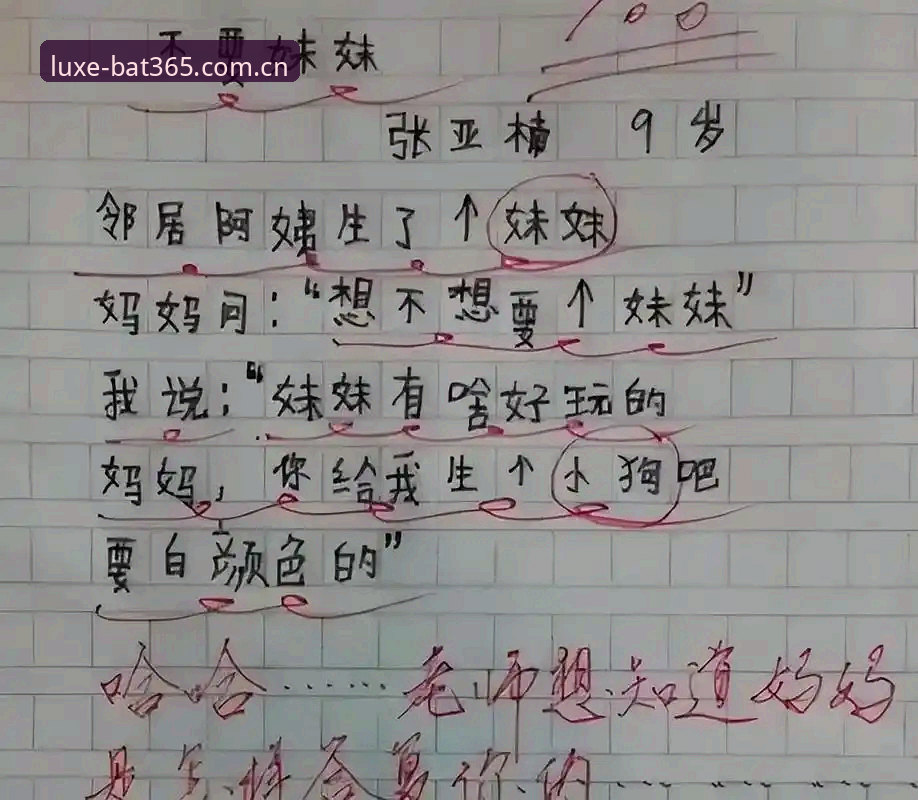 100
不要妹妹
luxe-bat365.com.cn
张亚楠 9岁
邻居阿姨生了个妹妹
妈妈问:“想不想要个妹妹”
我说:“妹妹有啥好玩的
妈妈,你给我生个小狗吧
要白颜色的”
哈哈……老师想知道妈妈
是怎样答复你的……